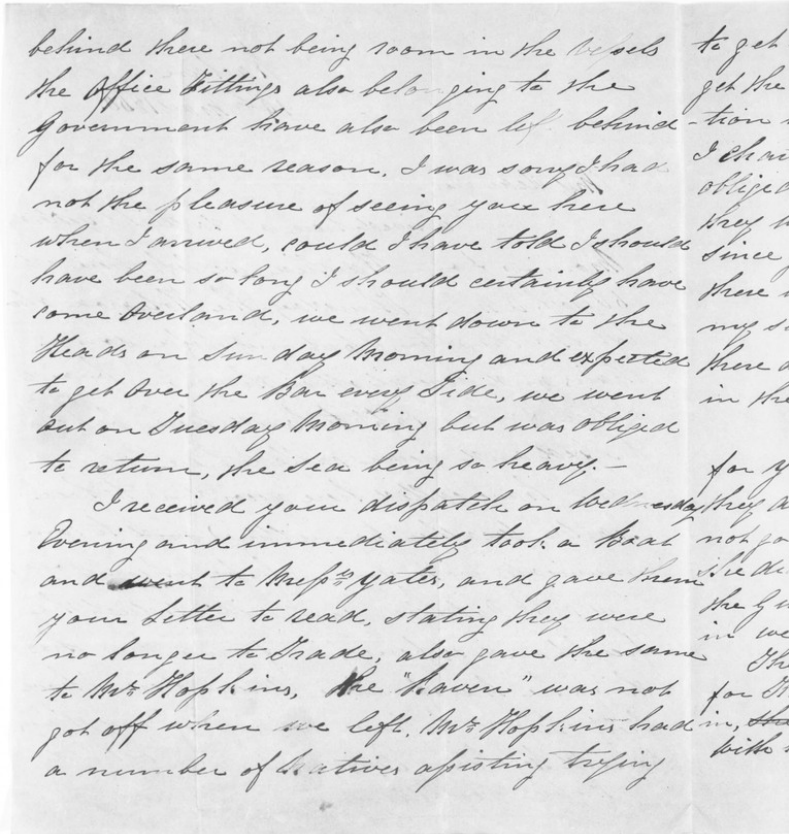 behind there not being room in the vessels
the Office Fittings also belonging to the
Government have also been left behind
for the same reason. I was sorry I had
not the pleasure of seeing you here
when I arrived, could I have told I should
have been so long I should certainly have
come overland, we went down to the
Heads on Sunday Morning and expected
to get over the Bar every Tide, we went
out on Tuesday Morning but was obliged
to return, the Sea being so heavy. –
I received your dispatch on Wednesday
Evening and immediately took a Boat
and went to Messrs Yates, and gave them
your Letter to read, stating they were
no longer to Trade, also gave the same
to Mr Hopkins, the "Raven" was not
got off when we left. Mr Hopkins had
a number of Natives assisting trying
to get
get the
-tion
I
obliged
they
since
there
my
there
in the
for
they
not
the
in we
for
in,
with